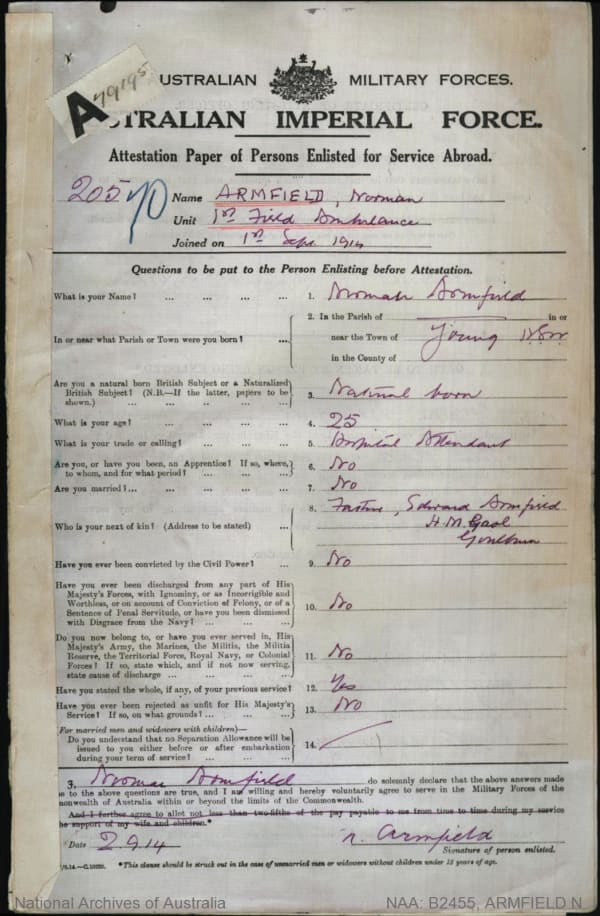 A 49195
AUSTRALIAN MILITARY FORCES.
AUSTRALIAN IMPERIAL FORCE.
Attestation Paper of Persons Enlisted for Service Abroad.
205 Name ARMFIELD, Norman
Unit 1st Field Ambulance
Joined on 1st Sept 1914
Questions to be put to the Person Enlisting before Attestation.
What is your Name? ... ... ... ... 1. Norman Armfield
2. In the Parish of in or
In or near what Parish or Town were you born? ... near the Town of Young NSW
in the County of
Are you a natural born British Subject or a Naturalized
British Subject? (N.B.—If the latter, papers to be
shown.) ... ... ... ... 3. Natural born
What is your age? ... ... ... ... 4. 25
What is your trade or calling? ... ... ... 5. Hospital Attendant
Are you, or have you been, an Apprentice? If so, where,
to whom, and for what period? ... ... ... 6. No
Are you married?... ... ... ... ... 7. No
8. Father, Edward Armfield
Who is your next of kin? (Address to be stated) ... H.M. Gaol
Goulburn
Have you ever been convicted by the Civil Power? ... 9. No
Have you ever been discharged from any part of His
Majesty's Forces, with Ignominy, or as Incorrigible and
Worthless, or on account of Conviction of Felony, or of a
Sentence of Penal Servitude, or have you been dismissed
with Disgrace from the Navy? ... ... ... 10. No
Do you now belong to, or have you ever served in, His
Majesty's Army, the Marines, the Militia, the Militia
Reserve, the Territorial Force, Royal Navy, or Colonial
Forces? If so, state which, and if not now serving,
state cause of discharge ... ... ... ... 11. No
Have you stated the whole, if any, of your previous service? 12. Yes
Have you ever been rejected as unfit for His Majesty's
Service? If so, on what grounds? ... ... ... 13. No
(For married men and widowers with children)—
Do you understand that no Separation Allowance will be
issued to you either before or after embarkation
during your term of service? ... ... ... 14.
3. Norman Armfield do solemnly declare that the above answers made
to the above questions are true, and I am willing and hereby voluntarily agree to serve in the Military Forces of the
nonwealth of Australia within or beyond the limits of the Commonwealth.
And I further agree to allot not less than two-fifths of the pay payable to me from time to time during my service
he support of my wife and children.*
Date 2.9.14 N. Armfield
Signature of person enlisted.
*This clause should be struck out in the case of unmarried men or widowers without children under 18 years of age.
National Archives of Australia NAA: B2455, ARMFIELD N